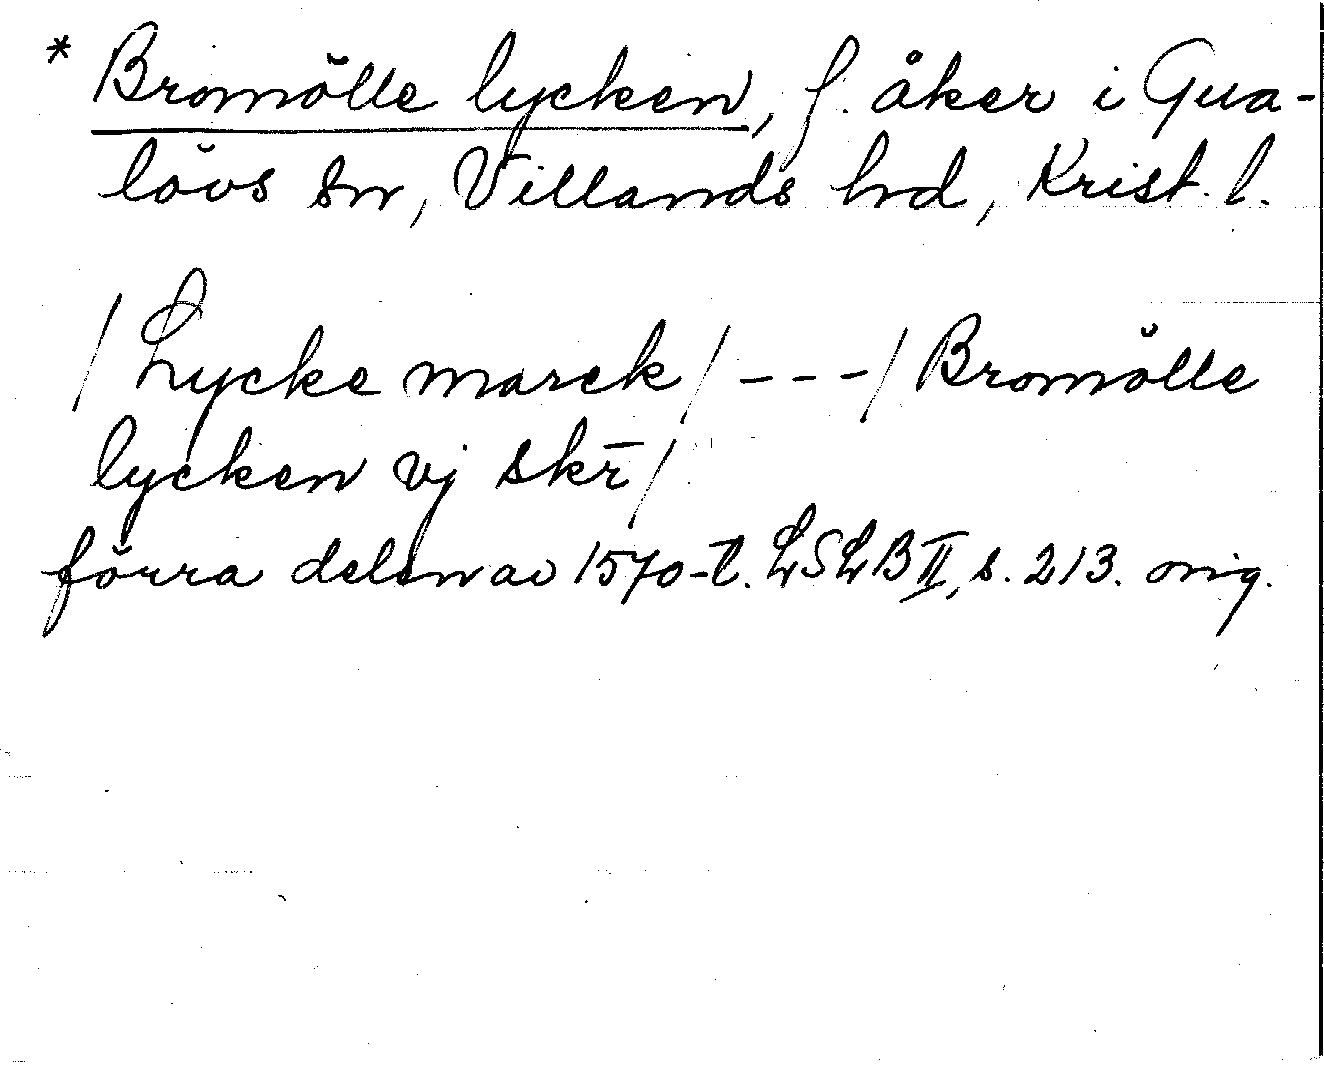 * Bromölle lycken, f. åker i Gua-
lövs sn, Villands hd, Krist. l.
/ Lycke marck / --- / Bromölle
lycken vj skr̄ /
förra delen av 1570-t. LSLB II, s. 213. orig.